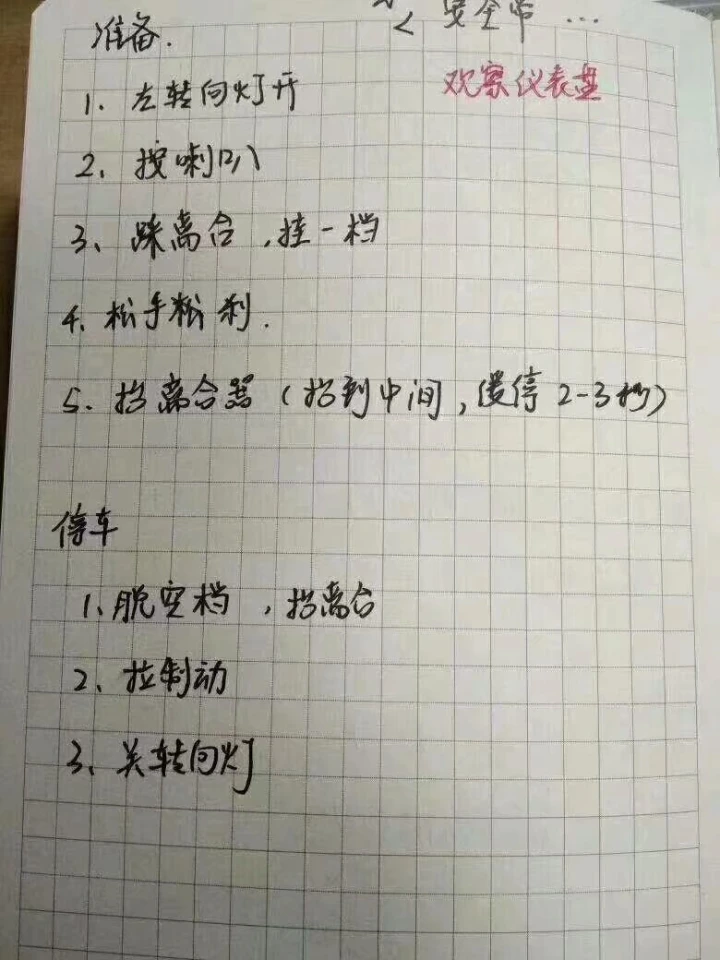 安全带 ...
准备.
观察仪表盘
1. 左转向灯开
2. 按喇叭
3、踩离合,挂一档
4. 松手刹.
5. 抬离合器(抬到中间,缓停2-3秒)
停车
1、脱空档,抬离合
2、拉制动
3、关转向灯